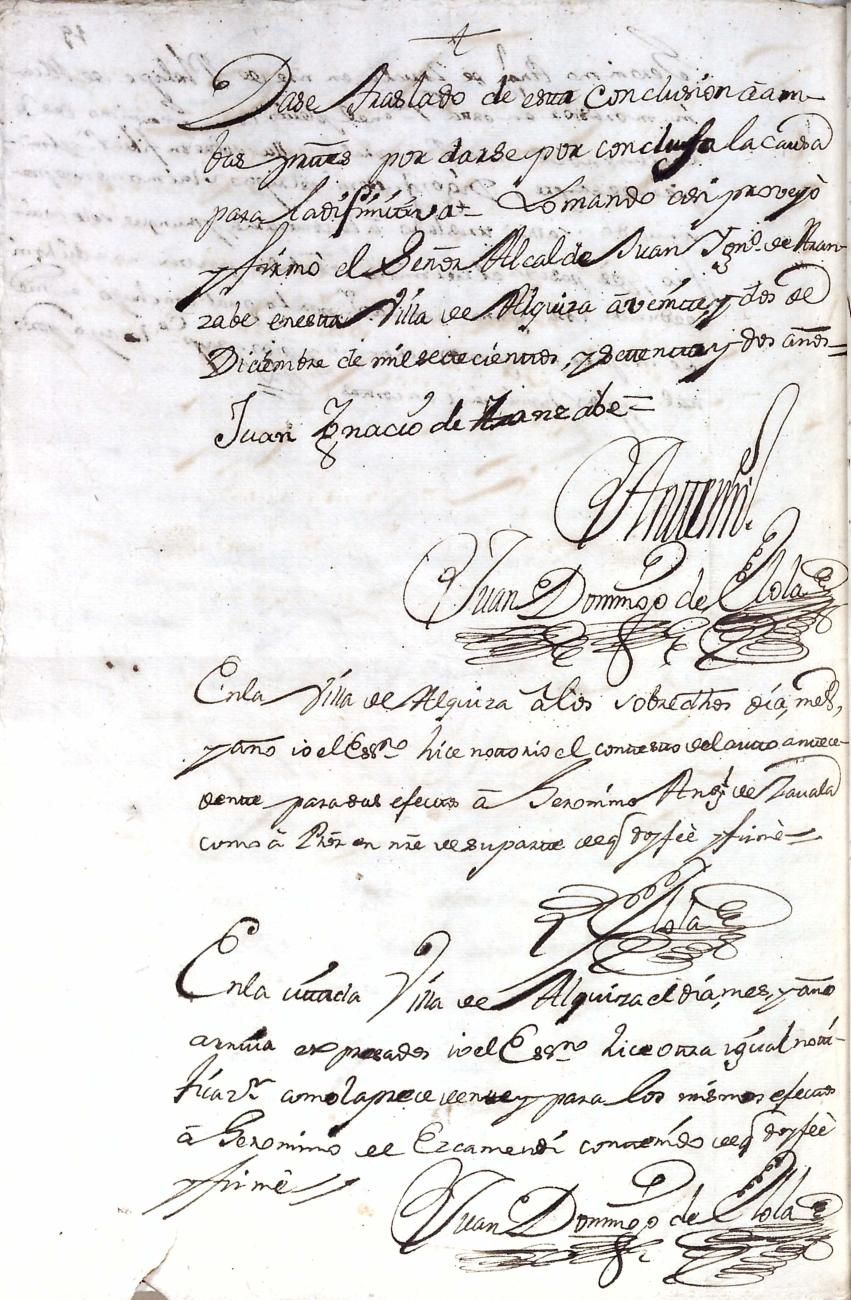 Dase traslado de esta conclusión â am-
bas partes por darse por conclusa la causa
para la difinitiva= Lo mando asi proveyò
y firmò el Señor Alcalde Juan Ign.º de Aran-
zabe en esta Villa de Alquiza â veinte, y dos de
Diciembre de mil setecientos, y setenta, y dos años=
Juan Ignacio de Aranzabe=
Antemi
Juan Domingo de Elola
En la Villa de Alquiza â los sobredhos dia, mes,
y año io el Essno hice notorio el contesto del auto antece-
dente para sus efectos â Geronimo Ang.l de Zavala
como â Pror en nre de su parte de q doy feè y firmè=
Elola
En la citada Villa de Alquiza el dia, mes, y año
arriva expresados io el Essno hice otra igual noti-
ficazn como la precedente y para los mismos efectos
â Geronimo de Ezcamendi contenido de q doy feè
y firmè=
Juan Domingo de Elola